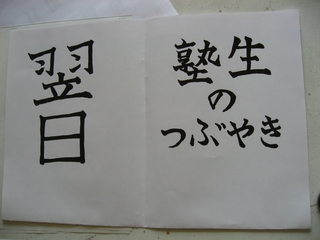 翌日
塾生
の
つぶやき